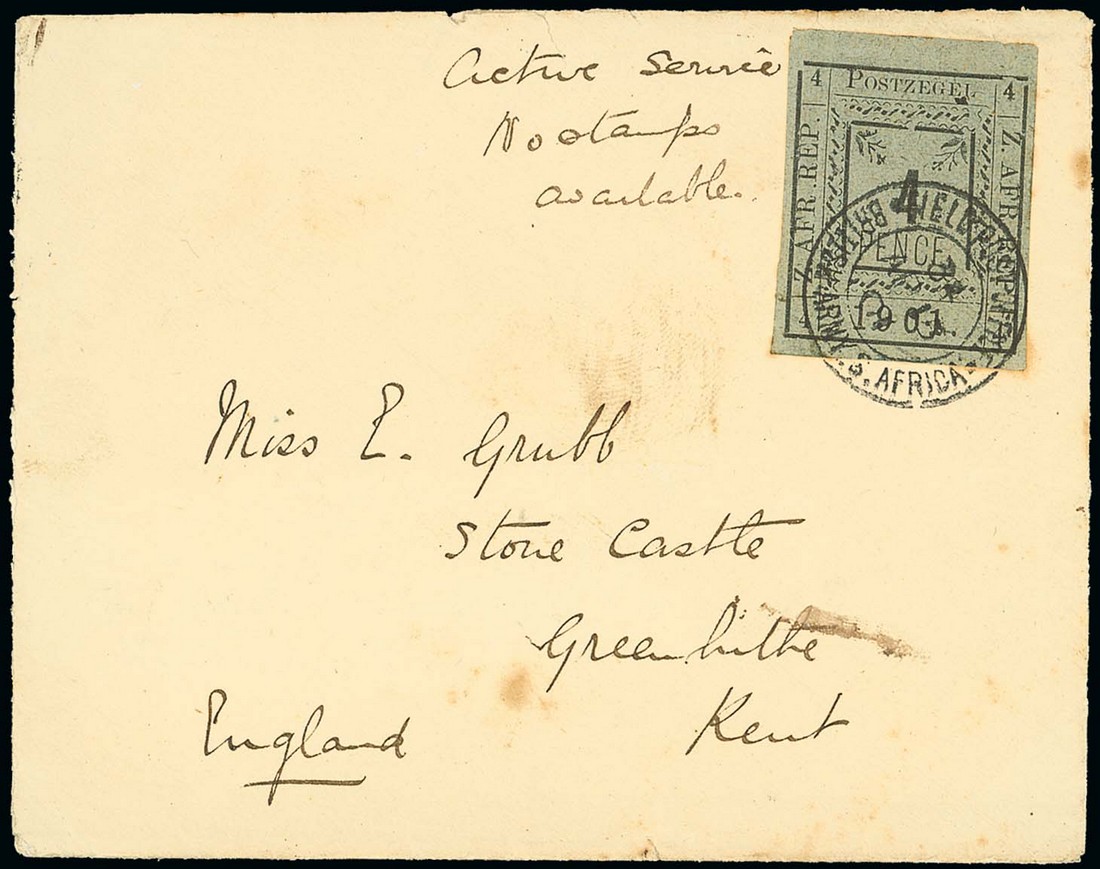 Active Service
No stamps
available.
4 POSTZEGEL 4
Z. AFR. REP.
Z. AFR. REP.
4
PENCE
4 1901. 4
BRITISH ARMY S. AFRICA
FIELD
Miss E. Grubb
Stone Castle
Greenhithe
Kent
England